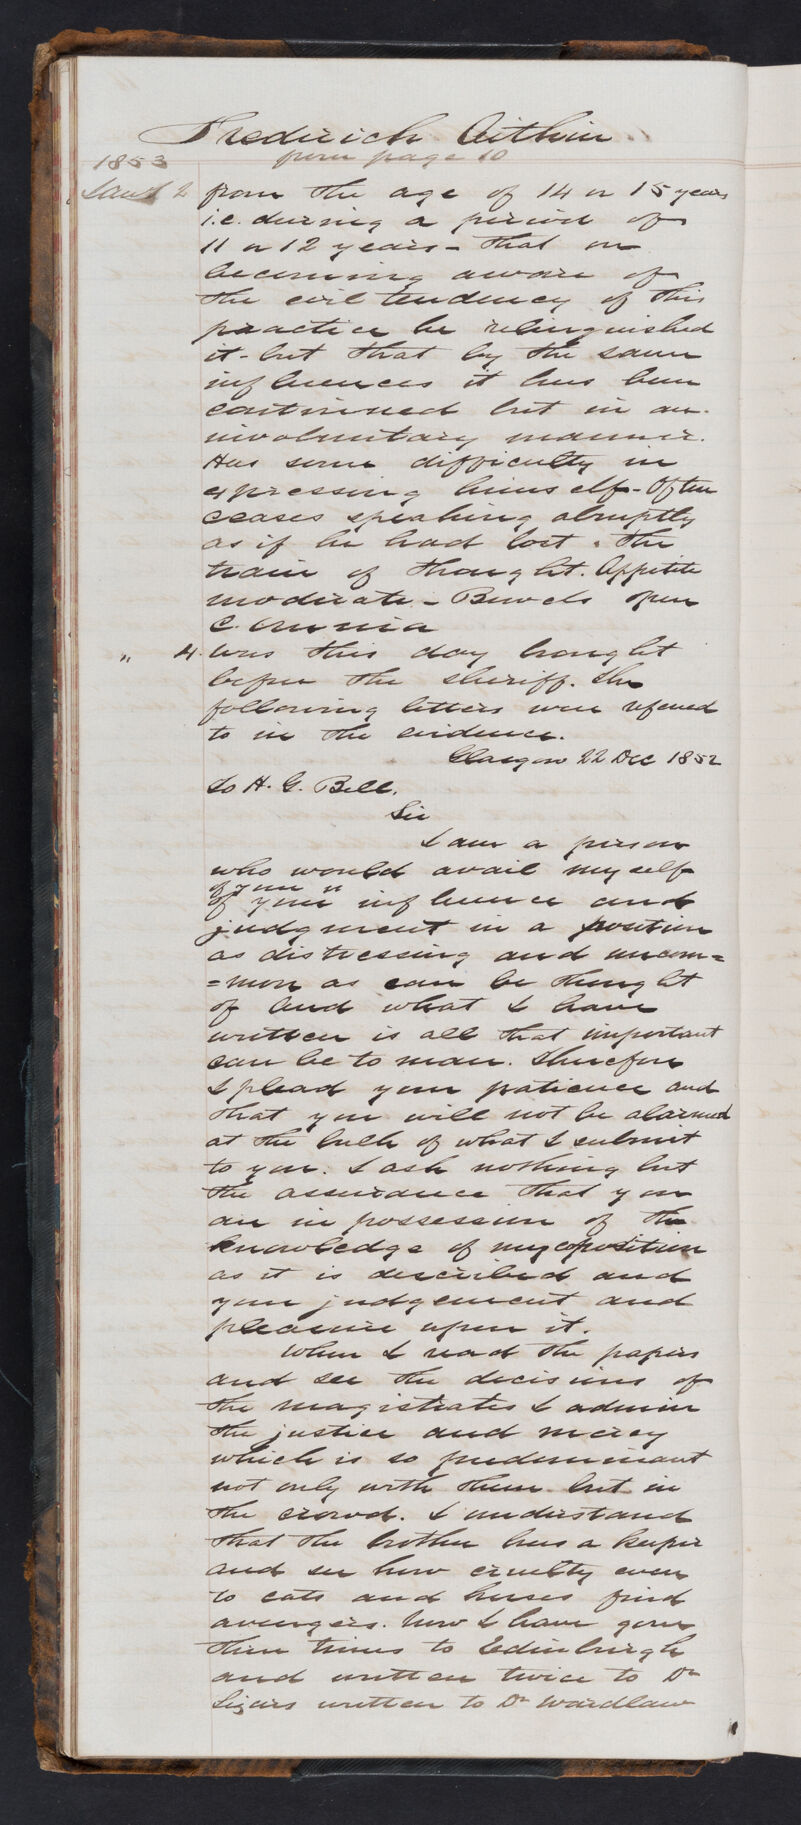 Frederick Aitkin
from page 10
1853
Jany 2 from the age of 14 or 15 years
i.e. during a period of
11 or 12 years – that on
becoming aware of
the evil tendency of this
practice he relinquished
it – but that by the same
influences it has been
continued but in an
involuntary manner.
Has some difficulty in
expressing himself – Often
ceases speaking abruptly
as if he had lost the
train of thought. Appetite
moderate – Bowels open
" 4. Was this day brought
before the sheriff. The
following letters were refered
to in the evidence.
Glasgow 22 Dec 1852
To H. G. Bell.
Sir
I am a person
who would avail myself
of your
of your influence and
judgment in a position
as distressing and uncom=
=mon as can be thought
of and what I have
written is all that important
can be to man. Therefore
I plead your patience and
that you will not be alarmed
at the bulk of what I submit
to you. I ask nothing but
the assurance that you
are in possession of the
knowledge of my position
as it is described and
your judgement and
pleasure upon it.
When I read the papers
and see the decisions of
the magistrates I admire
the justice and mercy
which is so predominant
not only with them but in
the crowd. I understand
that the brother has a keeper
and see how cruelty even
to cats and horses find
avengers. Now I have gone
three times to Edinburgh
and written twice to Dr
Lizars written to Dr Wardlaw